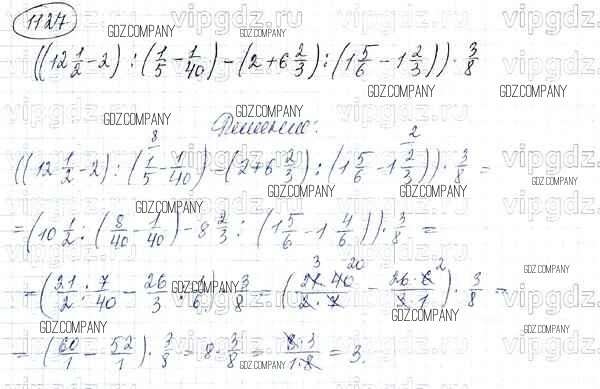 1127
((12 1/2 - 2) : (1/5 - 1/40) - (2 + 6 2/3) : (1 5/6 - 1 2/3)) · 3/8
Решение:
((12 1/2 - 2) : (1/5 - 1/40) - (2 + 6 2/3) : (1 5/6 - 1 2/3)) · 3/8 =
= (10 1/2 : (8/40 - 1/40) - 8 2/3 : (1 5/6 - 1 4/6)) · 3/8 =
= (21/2 : 7/40 - 26/3 : 1/6) · 3/8 = (21 · 40/2 · 7 - 26 · 6/3 · 1) · 3/8 =
= (60/1 - 52/1) · 3/8 = 8 · 3/8 = 8 · 3/1 · 8 = 3.
GDZ.COMPANY
vipgdz.ru